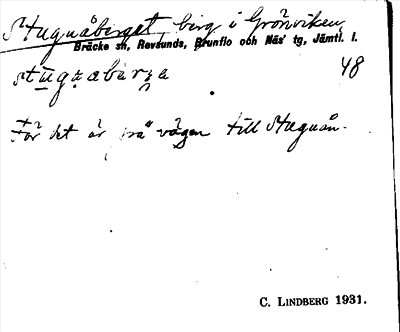 Stuguåberget, berg i Grönviken,
Bräcke sn, Revsunds, Brunflo och Näs' tg, Jämtl. l.
48
För det är på vägen till Stuguån.
C. LINDBERG 1931.